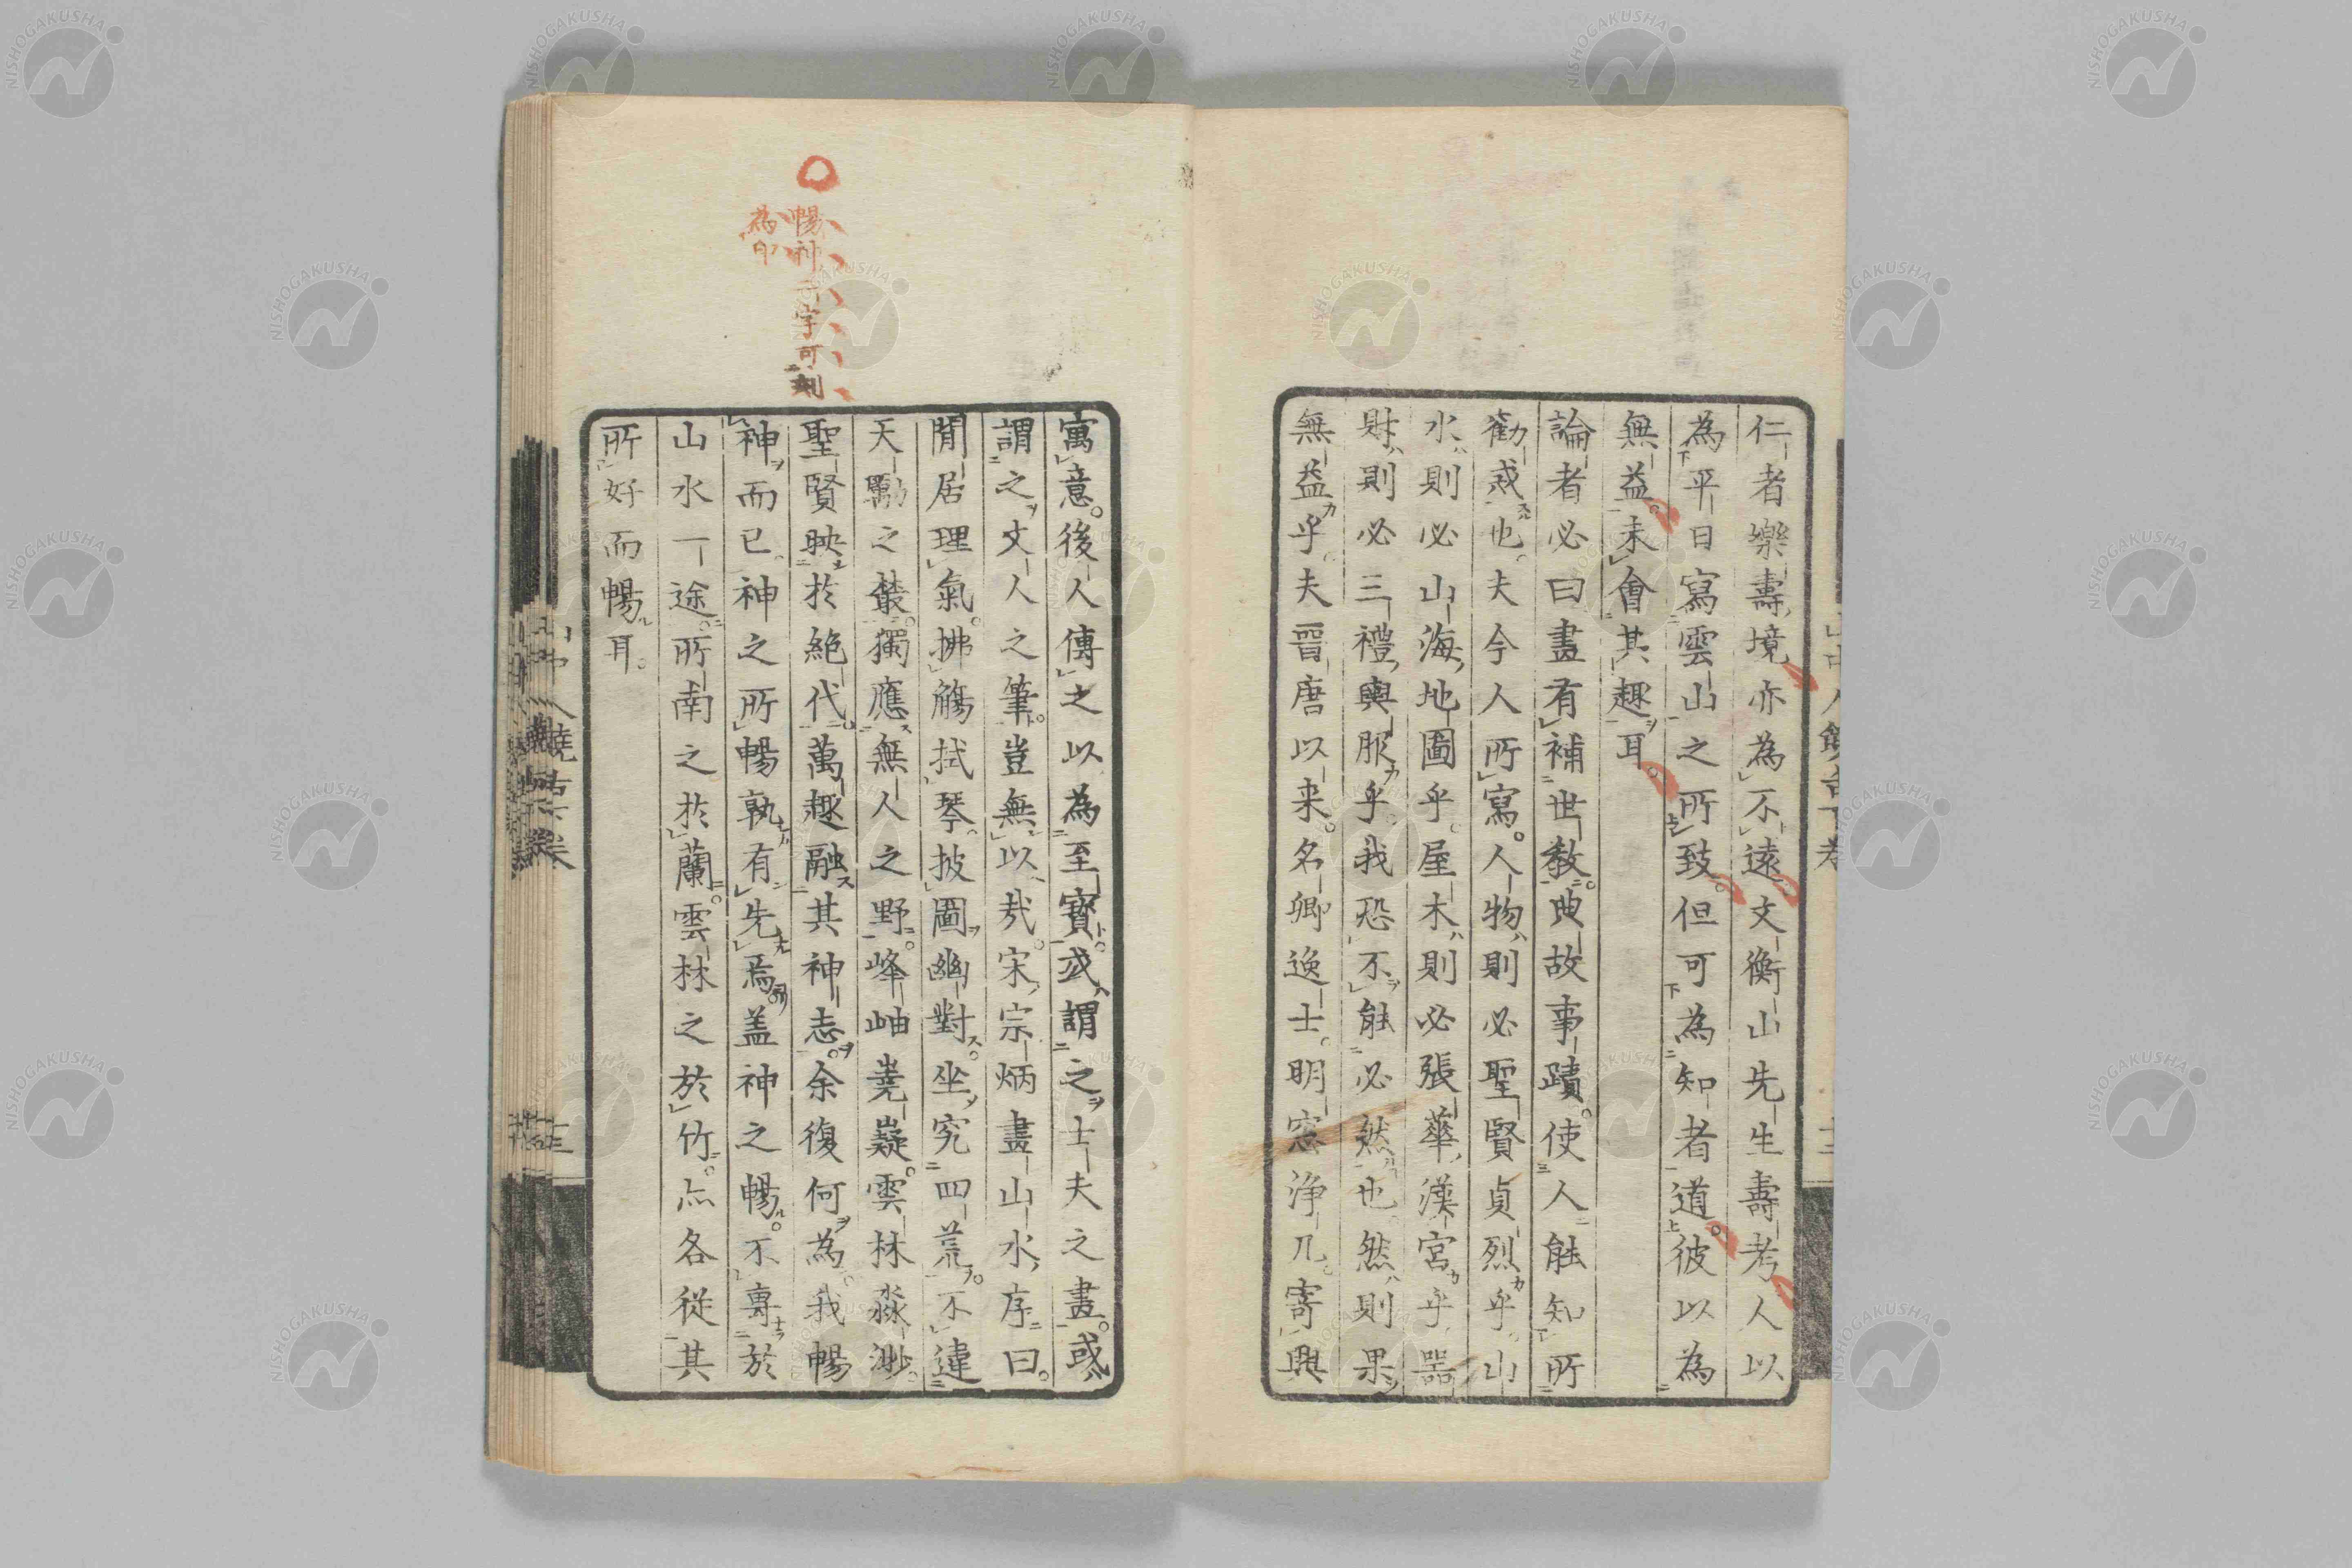 仁者樂壽境亦為不遠文衡山先生壽考人以
為平日寫雲山之所致但可為知者道彼以為
無益未會其趣耳
論者必曰畫有補世教典故事蹟使人能知所
勸戒也夫今人所寫人物則必聖賢貞烈乎山
水則必山海地圖乎屋木則必張華漢宮乎器
財則必三禮輿服乎我恐不能必然也然則果
無益乎夫晉唐以来名卿逸士明窓淨几寄興
寓意後人傳之以為至寶或謂之士夫之畫或
謂之文人之筆豈無以哉宋宗炳畫山水序曰
閒居理氣拂觴拭琴披圖幽對坐究四荒不違
天勵之藂獨應無人之野峰岫嶤嶷雲林淼渺
聖賢映於絶代萬趣融其神志余復何為我暢
神而已神之所暢孰有先焉盖神之暢不專於
山水一途所南之於蘭雲林之於竹亦各從其
所好而暢耳
暢神二字可刻
為印
NISHOGAKUSHA